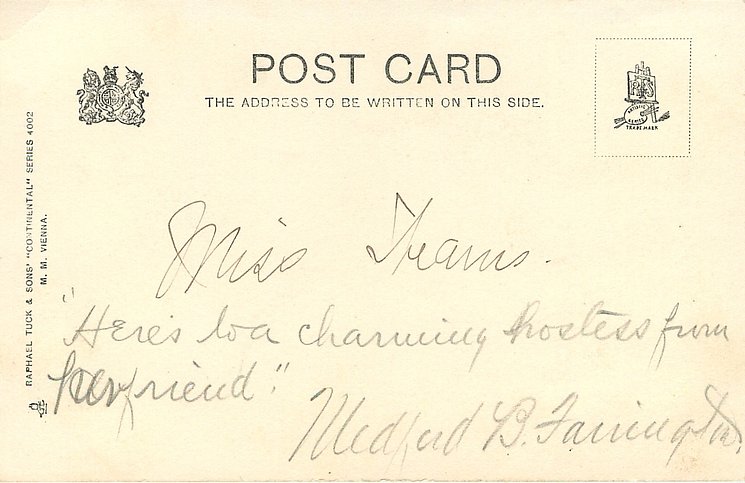 POST CARD
THE ADDRESS TO BE WRITTEN ON THIS SIDE.
RAPHAEL TUCK & SONS' "CONTINENTAL" SERIES 4002
M. M. VIENNA.
ARTISTIC
SERIES
TRADE MARK
Miss
"Here's to a charming hostess from
her friend."
Medford B. Farrington.